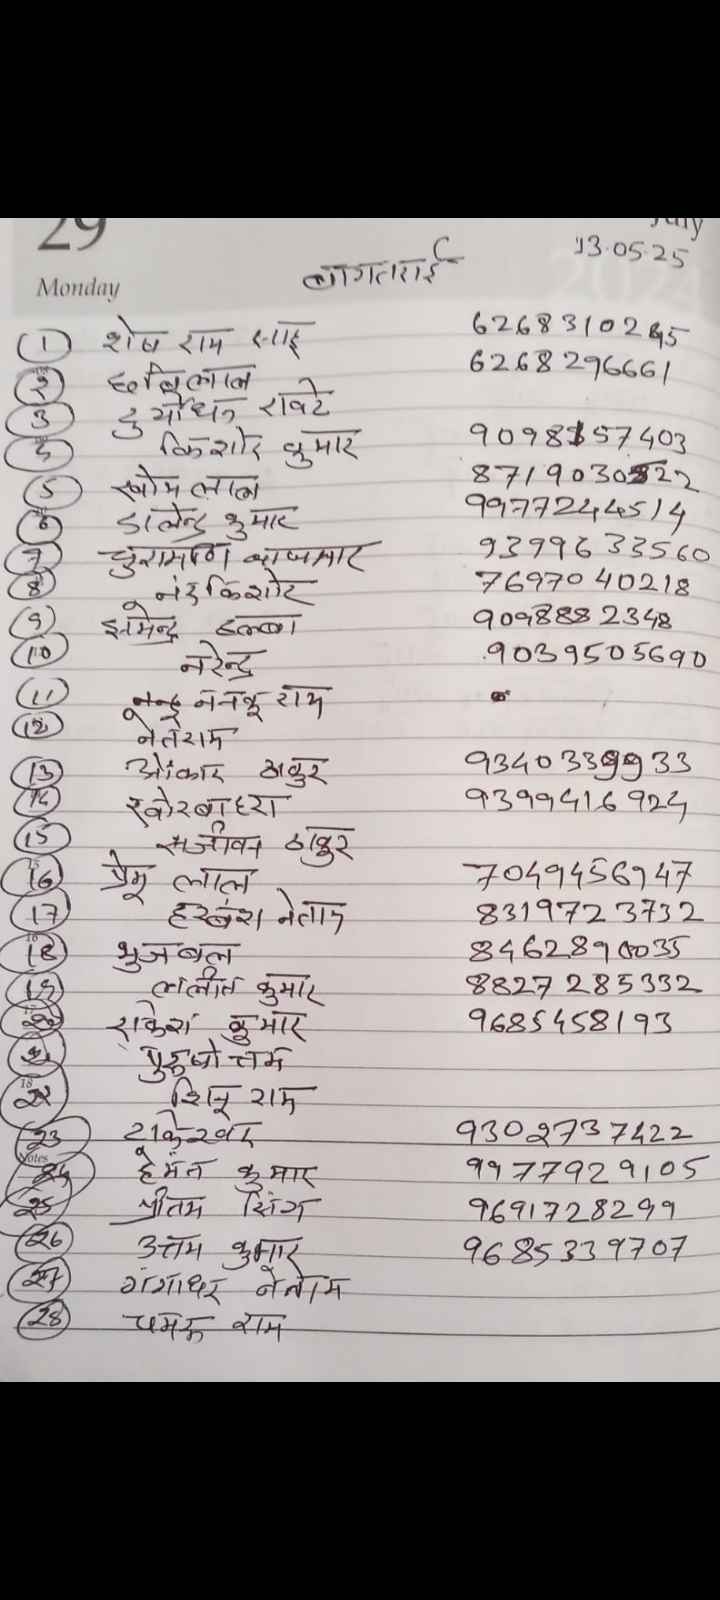 29
July
Monday
13.05.25
बागतराई
1 शेष राम साई 6268310245
2 छबिलाल 6268296661
3 दुर्योधन रावटे
4 किशोर कुमार 9098157403
5 खोम लाल 8719030522
6 डालेन्द्र कुमार 9977244514
7 चुरामणि 9399633560
8 नंदकिशोर 7697040218
9 9098882348
10 नरेन्द्र 9039505690
11 ननकू राम
12 नेतराम
13 ओंकार ठाकुर 9340339933
14 9399416924
15 सजीवन ठाकुर
16 प्रेमू लाल 7049456947
17 हरबंश नेताम 8319723732
18 भुजबल 8462890035
19 ललीत कुमार 8827285332
20 राकेश कुमार 9685458193
21 पुरुषोत्तम
22 शिबू राम
23 टाकेश्वर 9302737422
Notes
24 हेमंत कुमार 9977929105
25 प्रीतम सिंग 9691728299
26 उत्तम कुमार 9685339707
27 गंगाधर नेताम
28 चमरू राम